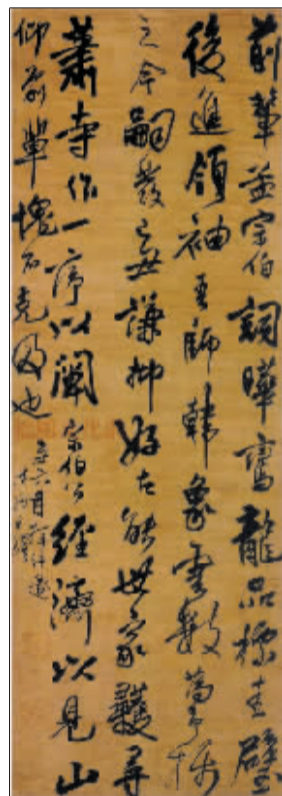 前輩孟宗伯詞曄鸞龍品標圭璧
後進領袖吾師韓象雲數萬
之令嗣發之毋謙抑好古能世家尋
蕭寺作一序以闡宗伯公經濟以見山
仰前輩愧不克及也